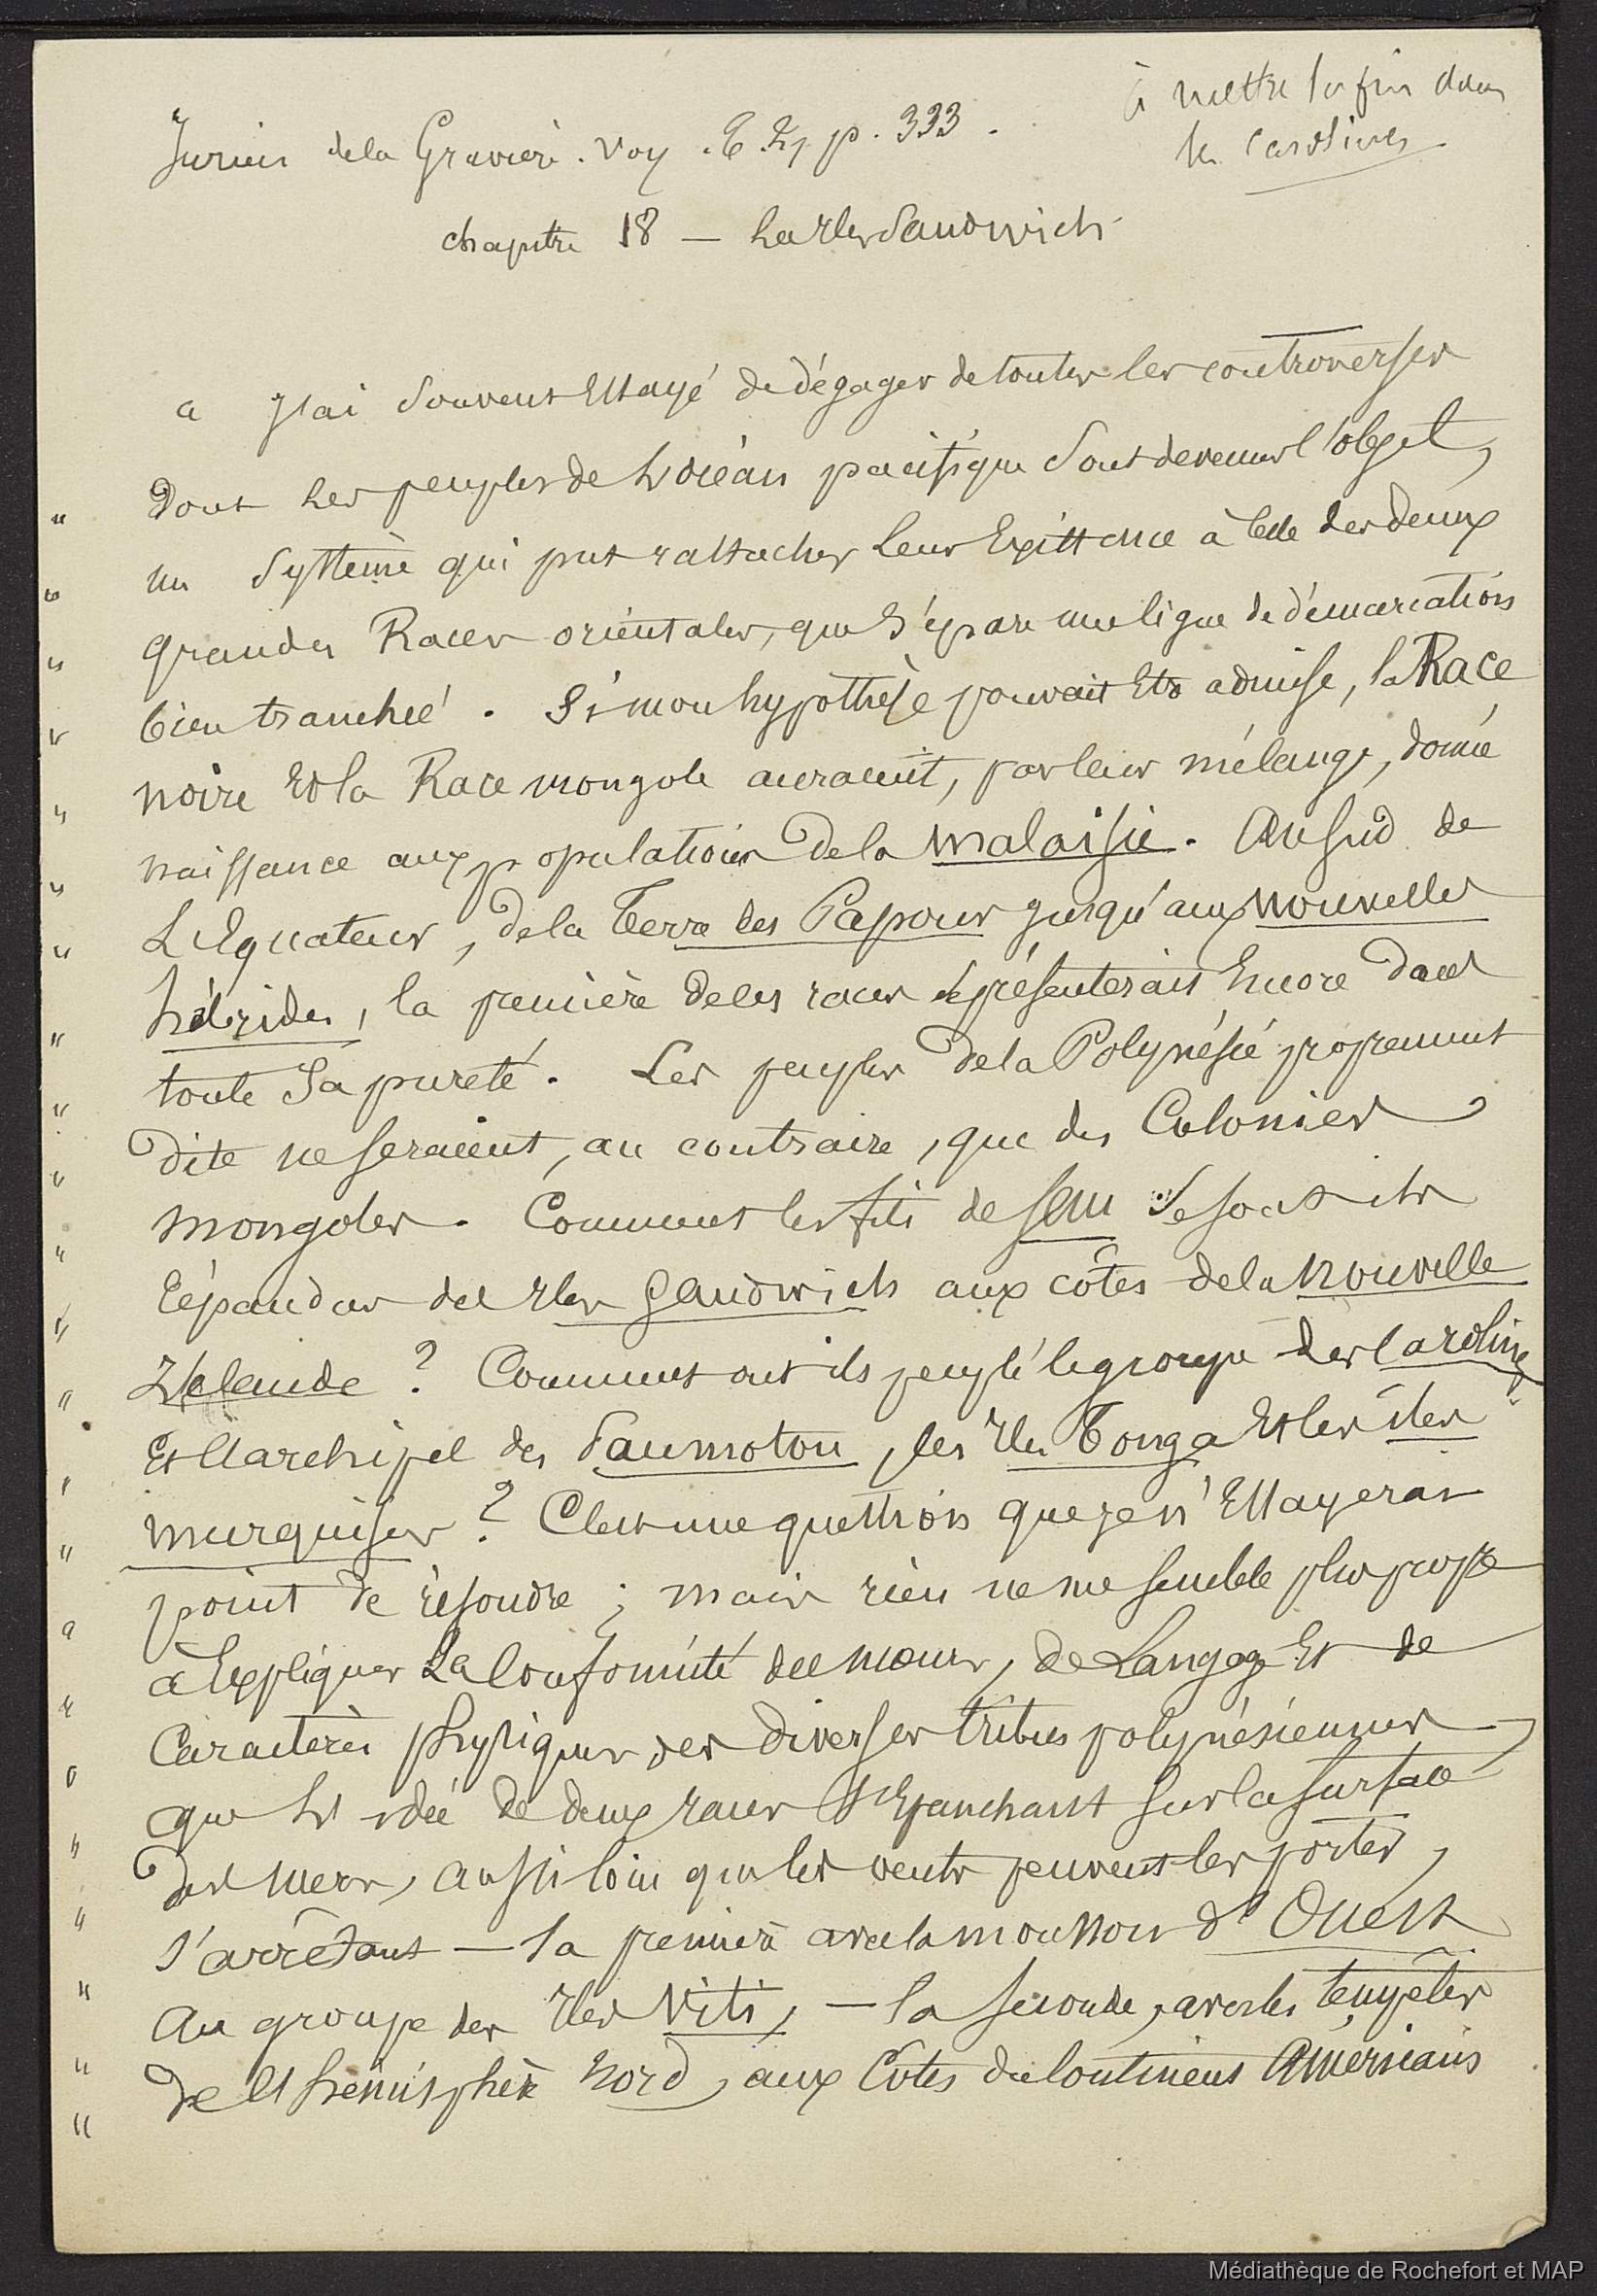 à mettre la fin dans
les Carolines
Jurien de la Gravière. Voy. T. 2, p. 333.
chapitre 18 — Les Iles Sandwich
« J'ai souvent essayé de dégager de toutes les controverses
" dont les peuples de l'océan pacifique sont devenus l'objet,
" un système qui put rattacher leur existence à celle des deux
" grandes Races orientales, que sépare une ligne de démarcation
" bien tranchée. Si mon hypothèse pouvait être admise, la Race
" noire et la Race mongole auraient, par leur mélange, donné
" naissance aux populations de la Malaisie. Au sud de
" L'Equateur, de la Terre des Papous jusqu'aux Nouvelles
" hébrides, la première de ces races se présenterait encore dans
" toute sa pureté. Les peuples de la Polynésie proprement
" dite ne seraient, au contraire, que des Colonies
" mongoles. Comment les fils de Sem se sont ils
" répandus des Iles Sandwich aux côtes de la Nouvelle
" Zélande ? Comment ont ils peuplé le groupe des Carolines
" et l'archipel des Paumotou, les Iles Tonga et les îles
" marquises ? C'est une question que je n'essayerai
" point de résoudre ; mais rien ne me semble plus propre
" à expliquer la conformité des mœurs, de Langage et de
" Caractères physiques des diverses tribus polynésiennes,
" que l'idée de deux races s'épanchant sur la surface
" des mers, aussi loin que les vents peuvent les porter,
" s'arrêtant — la première avec la mousson d'Ouest
" Au groupe des Iles Viti, — la seconde, avec les tempêtes
" de l'hémisphère Nord, aux Côtes du Continent Américain
Médiathèque de Rochefort et MAP